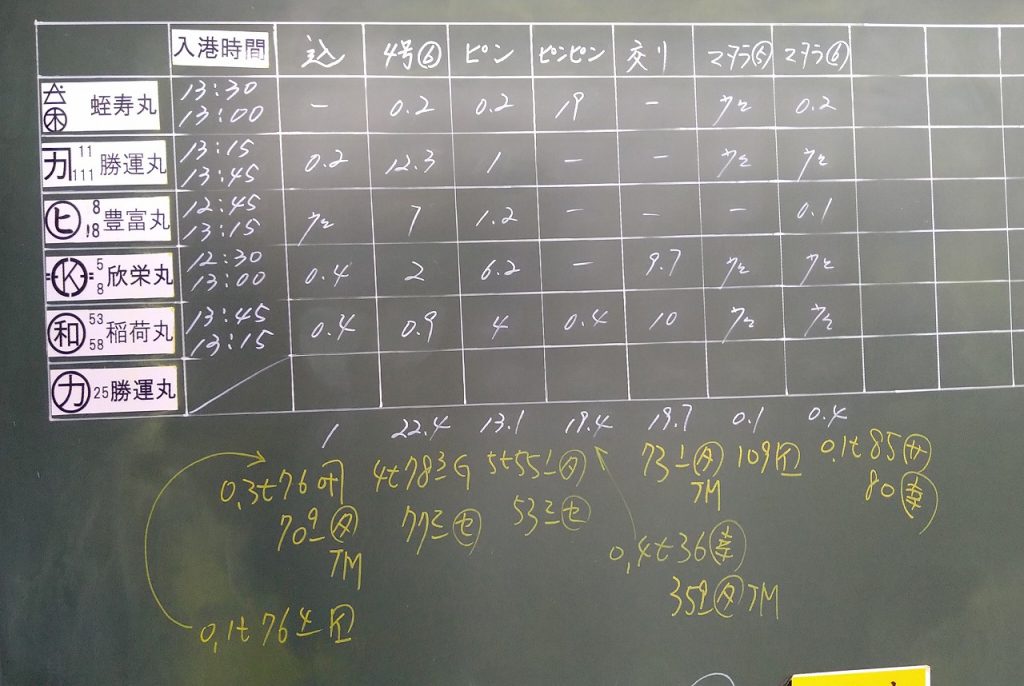 入港時間 込 4号⑥ ピン ピンピン 交り マタラ⑤ マタラ⑥
蛭寿丸 13:30 13:00 - 0.2 0.2 19 - 0.2
カ 11 111 勝運丸 13:15 13:45 0.2 12.3 1 - -
ヒ 8 18 豊富丸 12:45 13:15 7 1.2 - - - 0.1
K 5 8 欣栄丸 12:30 13:00 0.4 2 6.2 - 9.7
和 53 58 稲荷丸 13:45 13:15 0.4 0.9 4 0.4 10
カ 25 勝運丸
1 22.4 13.1 19.4 19.7 0.1 0.4
0.3t76 4t78ミG 5t55 タ 73 タ 109 0.1t85サ
70 タ 77 セ 53 セ TM 80幸
TM 0.4t36幸
35 タTM
0.1t76